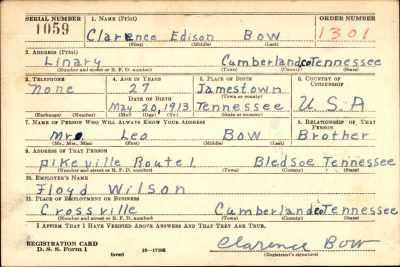 SERIAL NUMBER 1. NAME (Print) ORDER NUMBER
1059 Clarence Edison Bow 1301
(First) (Middle) (Last)
2. ADDRESS (Print)
Linary Cumberland co Tennessee
(Number and street or R. F. D. number) (Town) (County) (State)
3. TELEPHONE 4. AGE IN YEARS 5. PLACE OF BIRTH 6. COUNTRY OF CITIZENSHIP
none 27 Jamestown
DATE OF BIRTH (Town or county)
May 20, 1913 Tennessee U.S.A
(Exchange) (Number) (Mo.) (Day) (Yr.) (State or country)
7. NAME OF PERSON WHO WILL ALWAYS KNOW YOUR ADDRESS 8. RELATIONSHIP OF THAT PERSON
Mr. Leo Bow Brother
(Mr., Mrs., Miss) (First) (Middle) (Last)
9. ADDRESS OF THAT PERSON
pikeville Route 1 Bledsoe Tennessee
(Number and street or R. F. D. number) (Town) (County) (State)
10. EMPLOYER'S NAME
Floyd Wilson
11. PLACE OF EMPLOYMENT OR BUSINESS
Crossville Cumberland co Tennessee
(Number and street or R. F. D. number) (Town) (County) (State)
I AFFIRM THAT I HAVE VERIFIED ABOVE ANSWERS AND THAT THEY ARE TRUE.
REGISTRATION CARD Clarence Bow
D. S. S. Form 1 (over) 16—17105 (Registrant's signature)